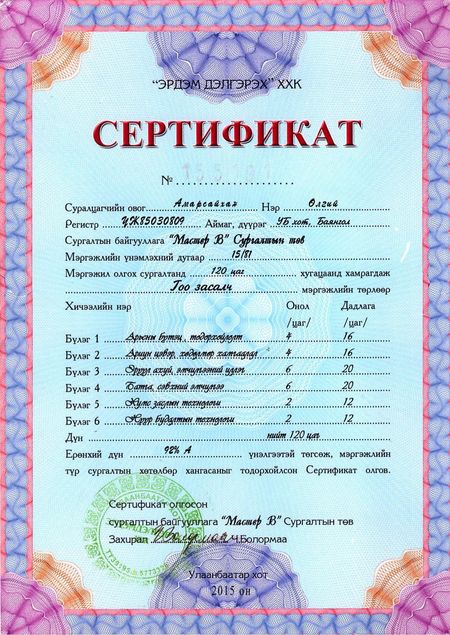 "ЭРДЭМ ДЭЛГЭРЭХ" ХХК
СЕРТИФИКАТ
№
Суралцагчийн овог Амарсайхан Нэр Өлгий
Регистр УЖ85030809 Аймаг, дүүрэг УБ хот, Баянгол
Сургалтын байгууллага "Мастер В" Сургалтын төв
Мэргэжлийн үнэмлэхний дугаар 15/81
Мэргэжил олгох сургалтанд 120 цаг хугацаанд хамрагдаж
Гоо засалч мэргэжлийн төрлөөр
Хичээлийн нэр Онол Дадлага
/цаг/ /цаг/
Бүлэг 1 Арьсны бүтэц, тодорхойлолт 4 16
Бүлэг 2 Ариун цэвэр, хөдөлмөр хамгаалал 4 16
Бүлэг 3 Эрүүл ахуй, эмчилгээний 6 20
Бүлэг 4 Батга, сэвхний эмчилгээ 6 20
Бүлэг 5 Нүүр заслын технологи 2 12
Бүлэг 6 Нүүр будалтын технологи 2 12
Дүн нийт 120 цаг
Ерөнхий дүн 92% А үнэлгээтэй төгсөж, мэргэжлийн
түр сургалтын хөтөлбөр хангасаныг тодорхойлсон Сертификат олгов.
Сертификат олгосон
сургалтын байгууллага "Мастер В" Сургалтын төв
Захирал Ч.Болормаа
Улаанбаатар хот
2015 он